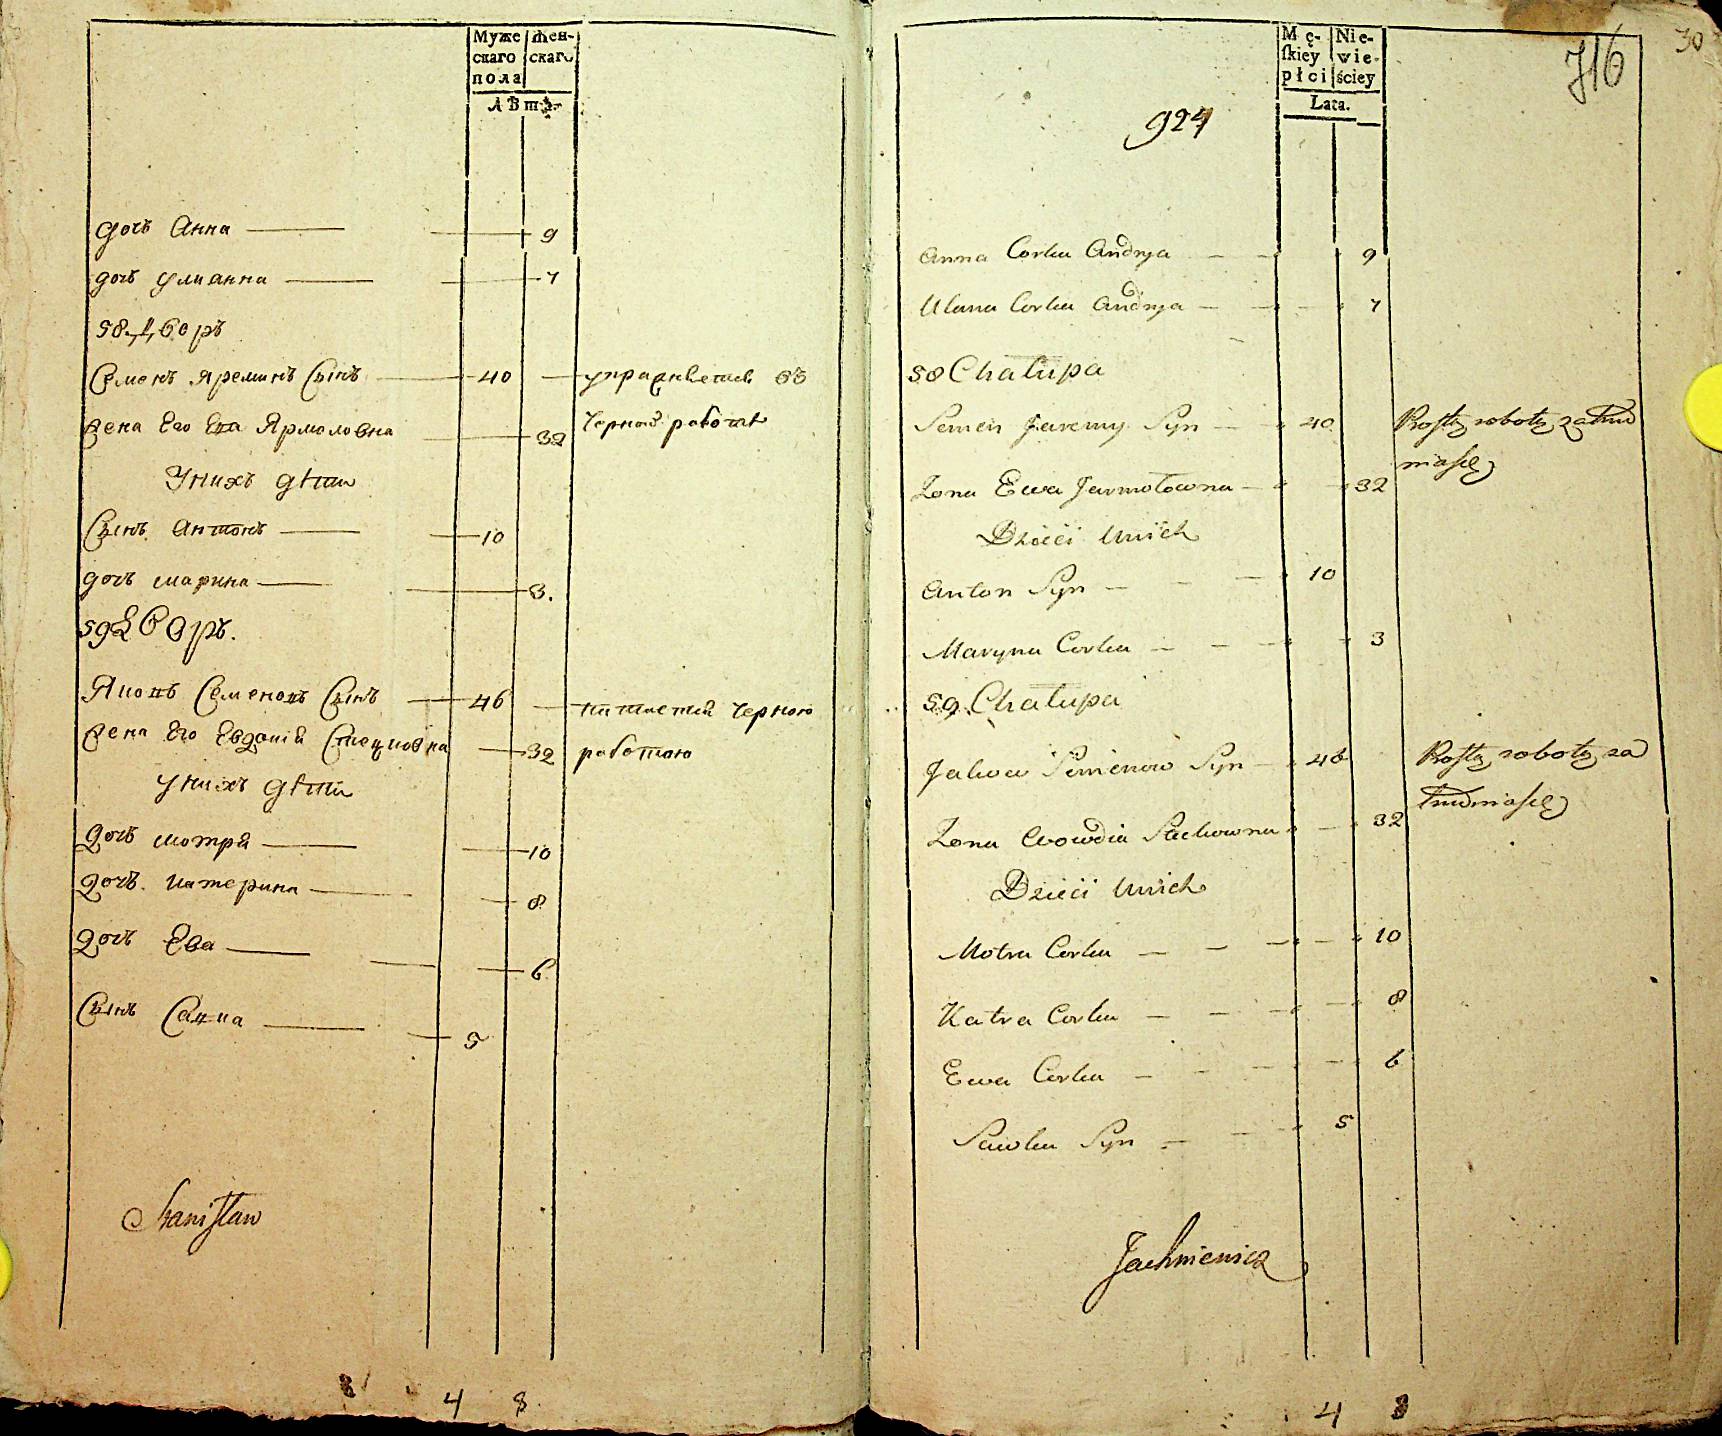 Муже
скаго
пола
Жен-
скаго
Лѣта
дочь Анна 9
дочь Улианна 7
58 Дворъ
Семенъ Яреминъ Сынъ 40 упражняется въ
Жена Его Ева Ярмоловна 32 Черной работѣ
У нихъ дѣти
Сынъ Антонъ 10
дочь Марина 3.
59 Дворъ.
Яковъ Семеновъ Сынъ 46 питается Черною
Жена Его Евдокія Стецковна 32 работою
у нихъ дѣти
Дочь Мотря 10
Дочь Катерина 8
Дочь Ева 6
Сынъ Савка 5
Stanisław
4 8
716
30
Mę-
skiey
płci
Nie-
wie-
ściey
Lata.
924
Anna Corka Andrya 9
Ulana Corka Andrya 7
58 Chałupa
Semen Jaremy Syn 40 Rostą robotą zatrud
niasię
Zona Ewa Jarmołowna 32
Dzieci Unich
Anton Syn 10
Maryna Corka 3
59 Chałupa
Jakow Semenow Syn 46 Rostą robotą za
trudniasię
Zona Ewowdia Steckowna 32
Dzieci Unich
Motra Corka 10
Katra Corka 8
Ewa Corka 6
Sawka Syn 5
Jachniewicz
4 8